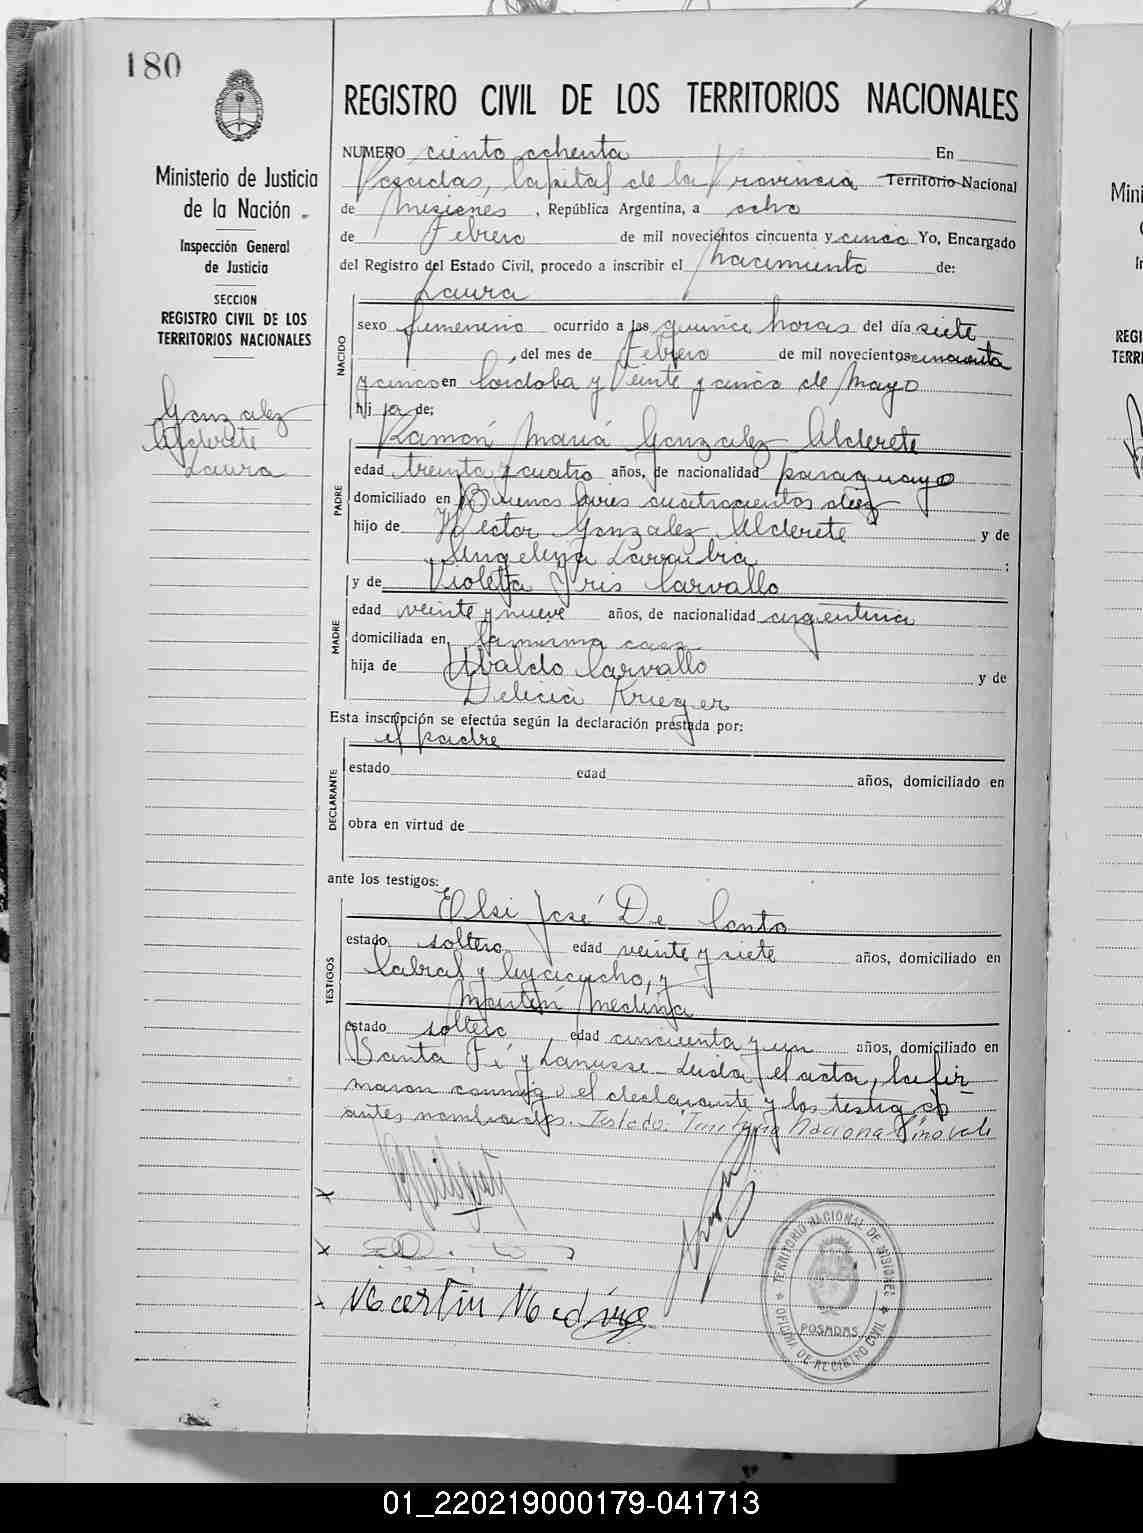 180
REGISTRO CIVIL DE LOS TERRITORIOS NACIONALES
Ministerio de Justicia
de la Nación
Inspección General
de Justicia
SECCION
REGISTRO CIVIL DE LOS
TERRITORIOS NACIONALES
Gonzalez
Alderete
Laura
NUMERO ciento ochenta En
Posadas, Capital de la Provincia Territorio Nacional
de Misiones, República Argentina, a ocho
de Febrero de mil novecientos cincuenta y cinco Yo, Encargado
del Registro del Estado Civil, procedo a inscribir el nacimiento de:
Laura
NACIDO
sexo femenino ocurrido a las quince horas del día siete
, del mes de Febrero de mil novecientos cincuenta
y cinco en Cordoba y Veinte y cinco de Mayo
hij a de:
PADRE
Ramón María Gonzalez Alderete
edad treinta y cuatro años, de nacionalidad paraguayo
domiciliado en Buenos Aires cuatrocientos diez
hijo de Héctor Gonzalez Alderete y de
Angelina :
MADRE
y de Violeta Iris Carvallo
edad veinte y nueve años, de nacionalidad argentina
domiciliada en la misma casa
hija de Ubaldo Carvallo y de
Delicia Krieger
Esta inscripción se efectúa según la declaración prestada por:
el padre
DECLARANTE
estado edad años, domiciliado en
obra en virtud de
ante los testigos:
TESTIGOS
Elsi José De Conto
estado soltero edad veinte y siete años, domiciliado en
Cabral y Ayacucho, y
Martín Medina
estado soltero edad cincuenta y un años, domiciliado en
Santa Fé y Lanusse. Leída el acta, la fir
maron conmigo el declarante y los testigos
antes nombrados. Testado: Territorio Nacional: no vale
x
x
x Martin Medina
TERRITORIO NACIONAL DE MISIONES
POSADAS
OFICINA DE REGISTRO CIVIL
Mini
REGI
TERRI
01_220219000179-041713